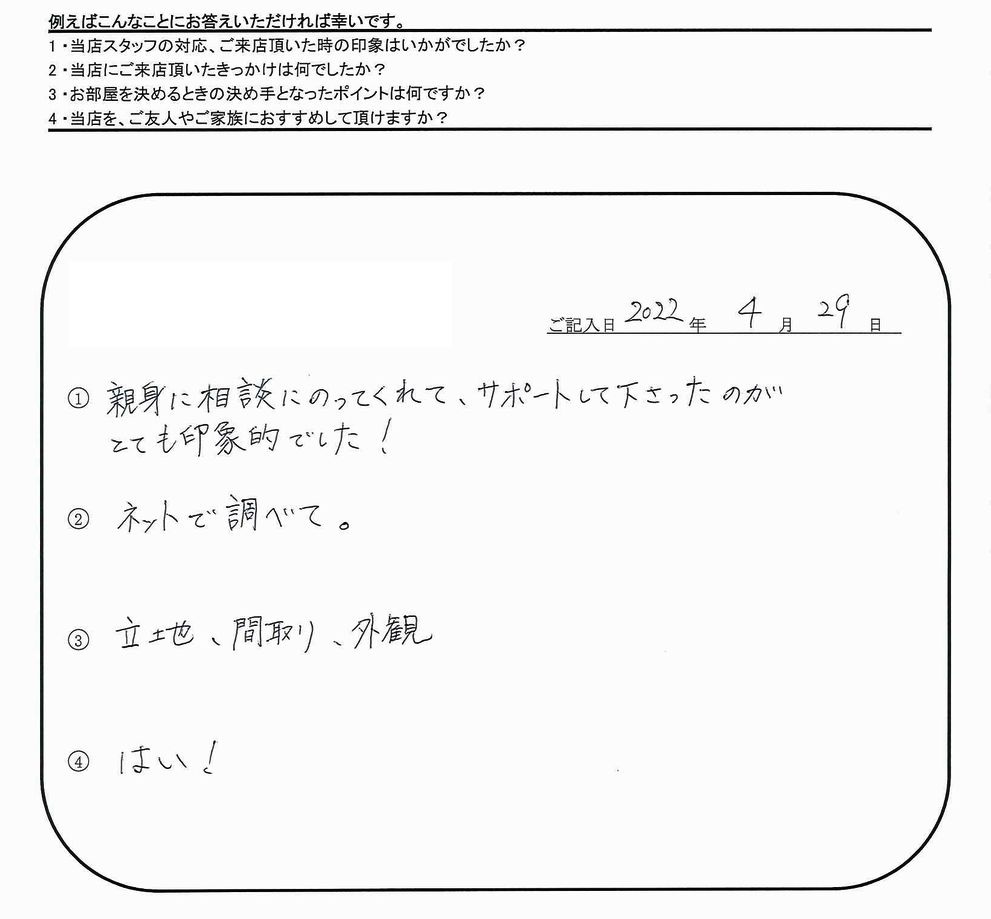 例えばこんなことにお答えいただければ幸いです。
1・当店スタッフの対応、ご来店頂いた時の印象はいかがでしたか？
2・当店にご来店頂いたきっかけは何でしたか？
3・お部屋を決めるときの決め手となったポイントは何ですか？
4・当店を、ご友人やご家族におすすめして頂けますか？
ご記入日 2022 年 4 月 29 日
① 親身に相談にのってくれて、サポートして下さったのが
とても印象的でした！
② ネットで調べて。
③ 立地、間取り、外観
④ はい！